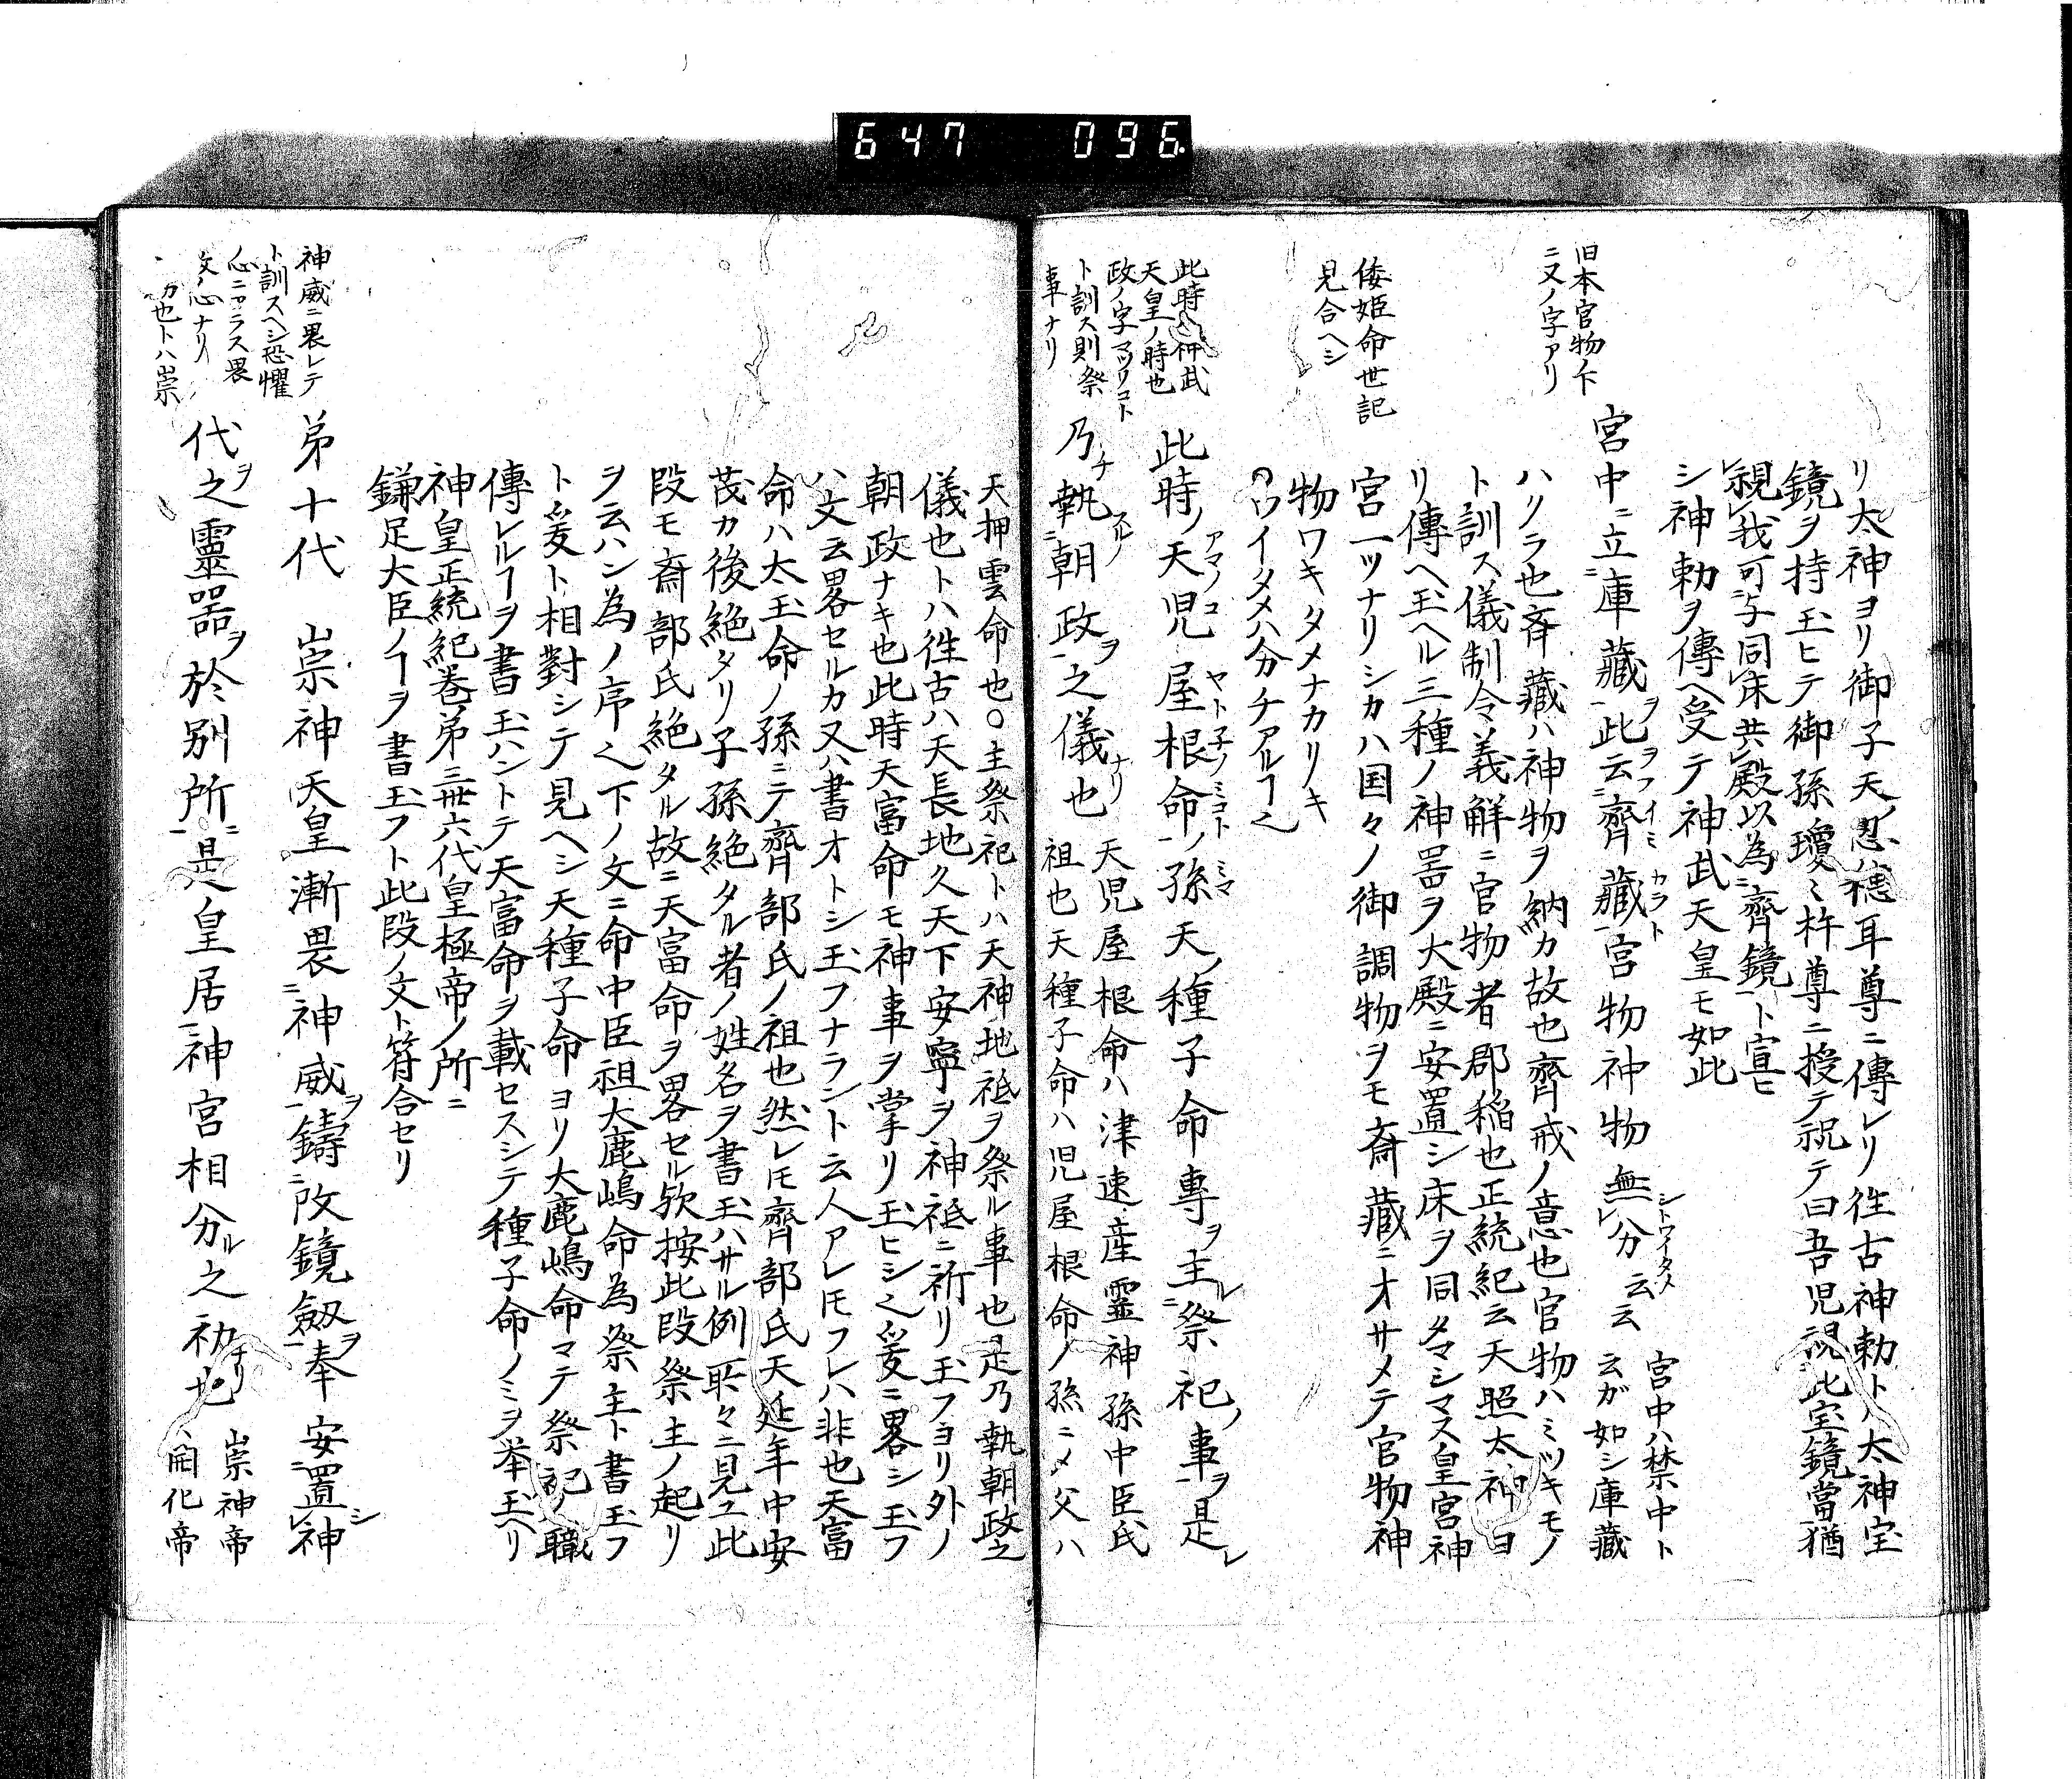 647 096
リ太神ヨリ御子天ノ忍穂耳尊ニ傳レリ徃古神勅トハ太神宝
鏡ヲ持玉ヒテ御孫瓊々杵尊ニ授テ祝テ曰吾児視此宝鏡當猶
視我可与同床共殿以為齊鏡ト宣ヒ
シ神勅ヲ傳ヘ受テ神武天皇モ如此
旧本官物ノ下
ニ又ノ字アリ
宮中ニ立庫藏ヲ此云齊藏官物神物無分云云
宮中ハ禁中ト
云ガ如シ庫藏
ハクラ也斉藏ハ神物ヲ納カ故也齊戒ノ意也官物ハミツキモノ
ト訓ス儀制令義解ニ官物者郡稲也正統紀云天照太神ヨ
リ傳ヘ玉ヘル三種ノ神器ヲ大殿ニ安置シ床ヲ同クマシマス皇宮神
倭姫命世記
見合ヘシ
宮一ツナリシカハ国々ノ御調物ヲモ斎藏ニオサメテ官物神
物ワキタメナカリキ
ワイタメハ分チアルヿ也
此時ハ神武
天皇ノ時也
政ノ字マツリコト
ト訓ス則祭
事ナリ
此時ノ天児屋根命ノ孫天ノ種子命專ヲ主ル祭祀ノ事ヲ是レ
乃チ執朝政ヲ之儀也
天児屋根命ハ津速産霊神孫中臣氏
祖也天種子命ハ児屋根命ノ孫ニメ父ハ
天押雲命也〇主祭祀トハ天神地祇ヲ祭ル事也是乃執朝政之
儀也トハ徃古ハ天長地久天下安寧ヲ神祇ニ祈リ玉フヨリ外ノ
朝政ナキ也此時天富命モ神事ヲ掌リ玉ヒシ也爰ニ畧シ玉フ
ハ文云畧セルカ又ハ書オトシ玉フナラント云人アレモフレハ非也天富
命ハ太玉命ノ孫ニテ齊部氏ノ祖也然レモ齊部氏天延年中安
茂カ後絶タリ子孫絶タル者ノ姓名ヲ書玉ハサル例所々ニ見ユ此
段モ斎部氏絶タル故ニ天富命ヲ畧セル欤按此段祭主ノ起リ
ヲ云ハン為ノ序也下ノ文ニ命中臣祖大鹿嶋命為祭主ト書玉フ
ト爰ト相對シテ見ヘシ天種子命ヨリ大鹿嶋命マテ祭祀ノ職
傳レルヿヲ書玉ハントテ天富命ヲ載セスシテ種子命ノミヲ挙玉ヘリ
神皇正統紀巻第三卅六代皇極帝ノ所ニ
鎌足大臣ノヿヲ書玉フト此段ノ文ト符合セリ
神威ニ畏レテ
ト訓スヘシ恐懼
心ニアラス畏
ノ心ナリ
也トハ崇
第十代 崇神天皇漸畏神威ヲ鑄改鏡劔ヲ奉安置シ神
代ヲ之靈器ヲ於別所ニ是皇居神宮相分ル之初也ナリ
崇神帝
ハ開化帝